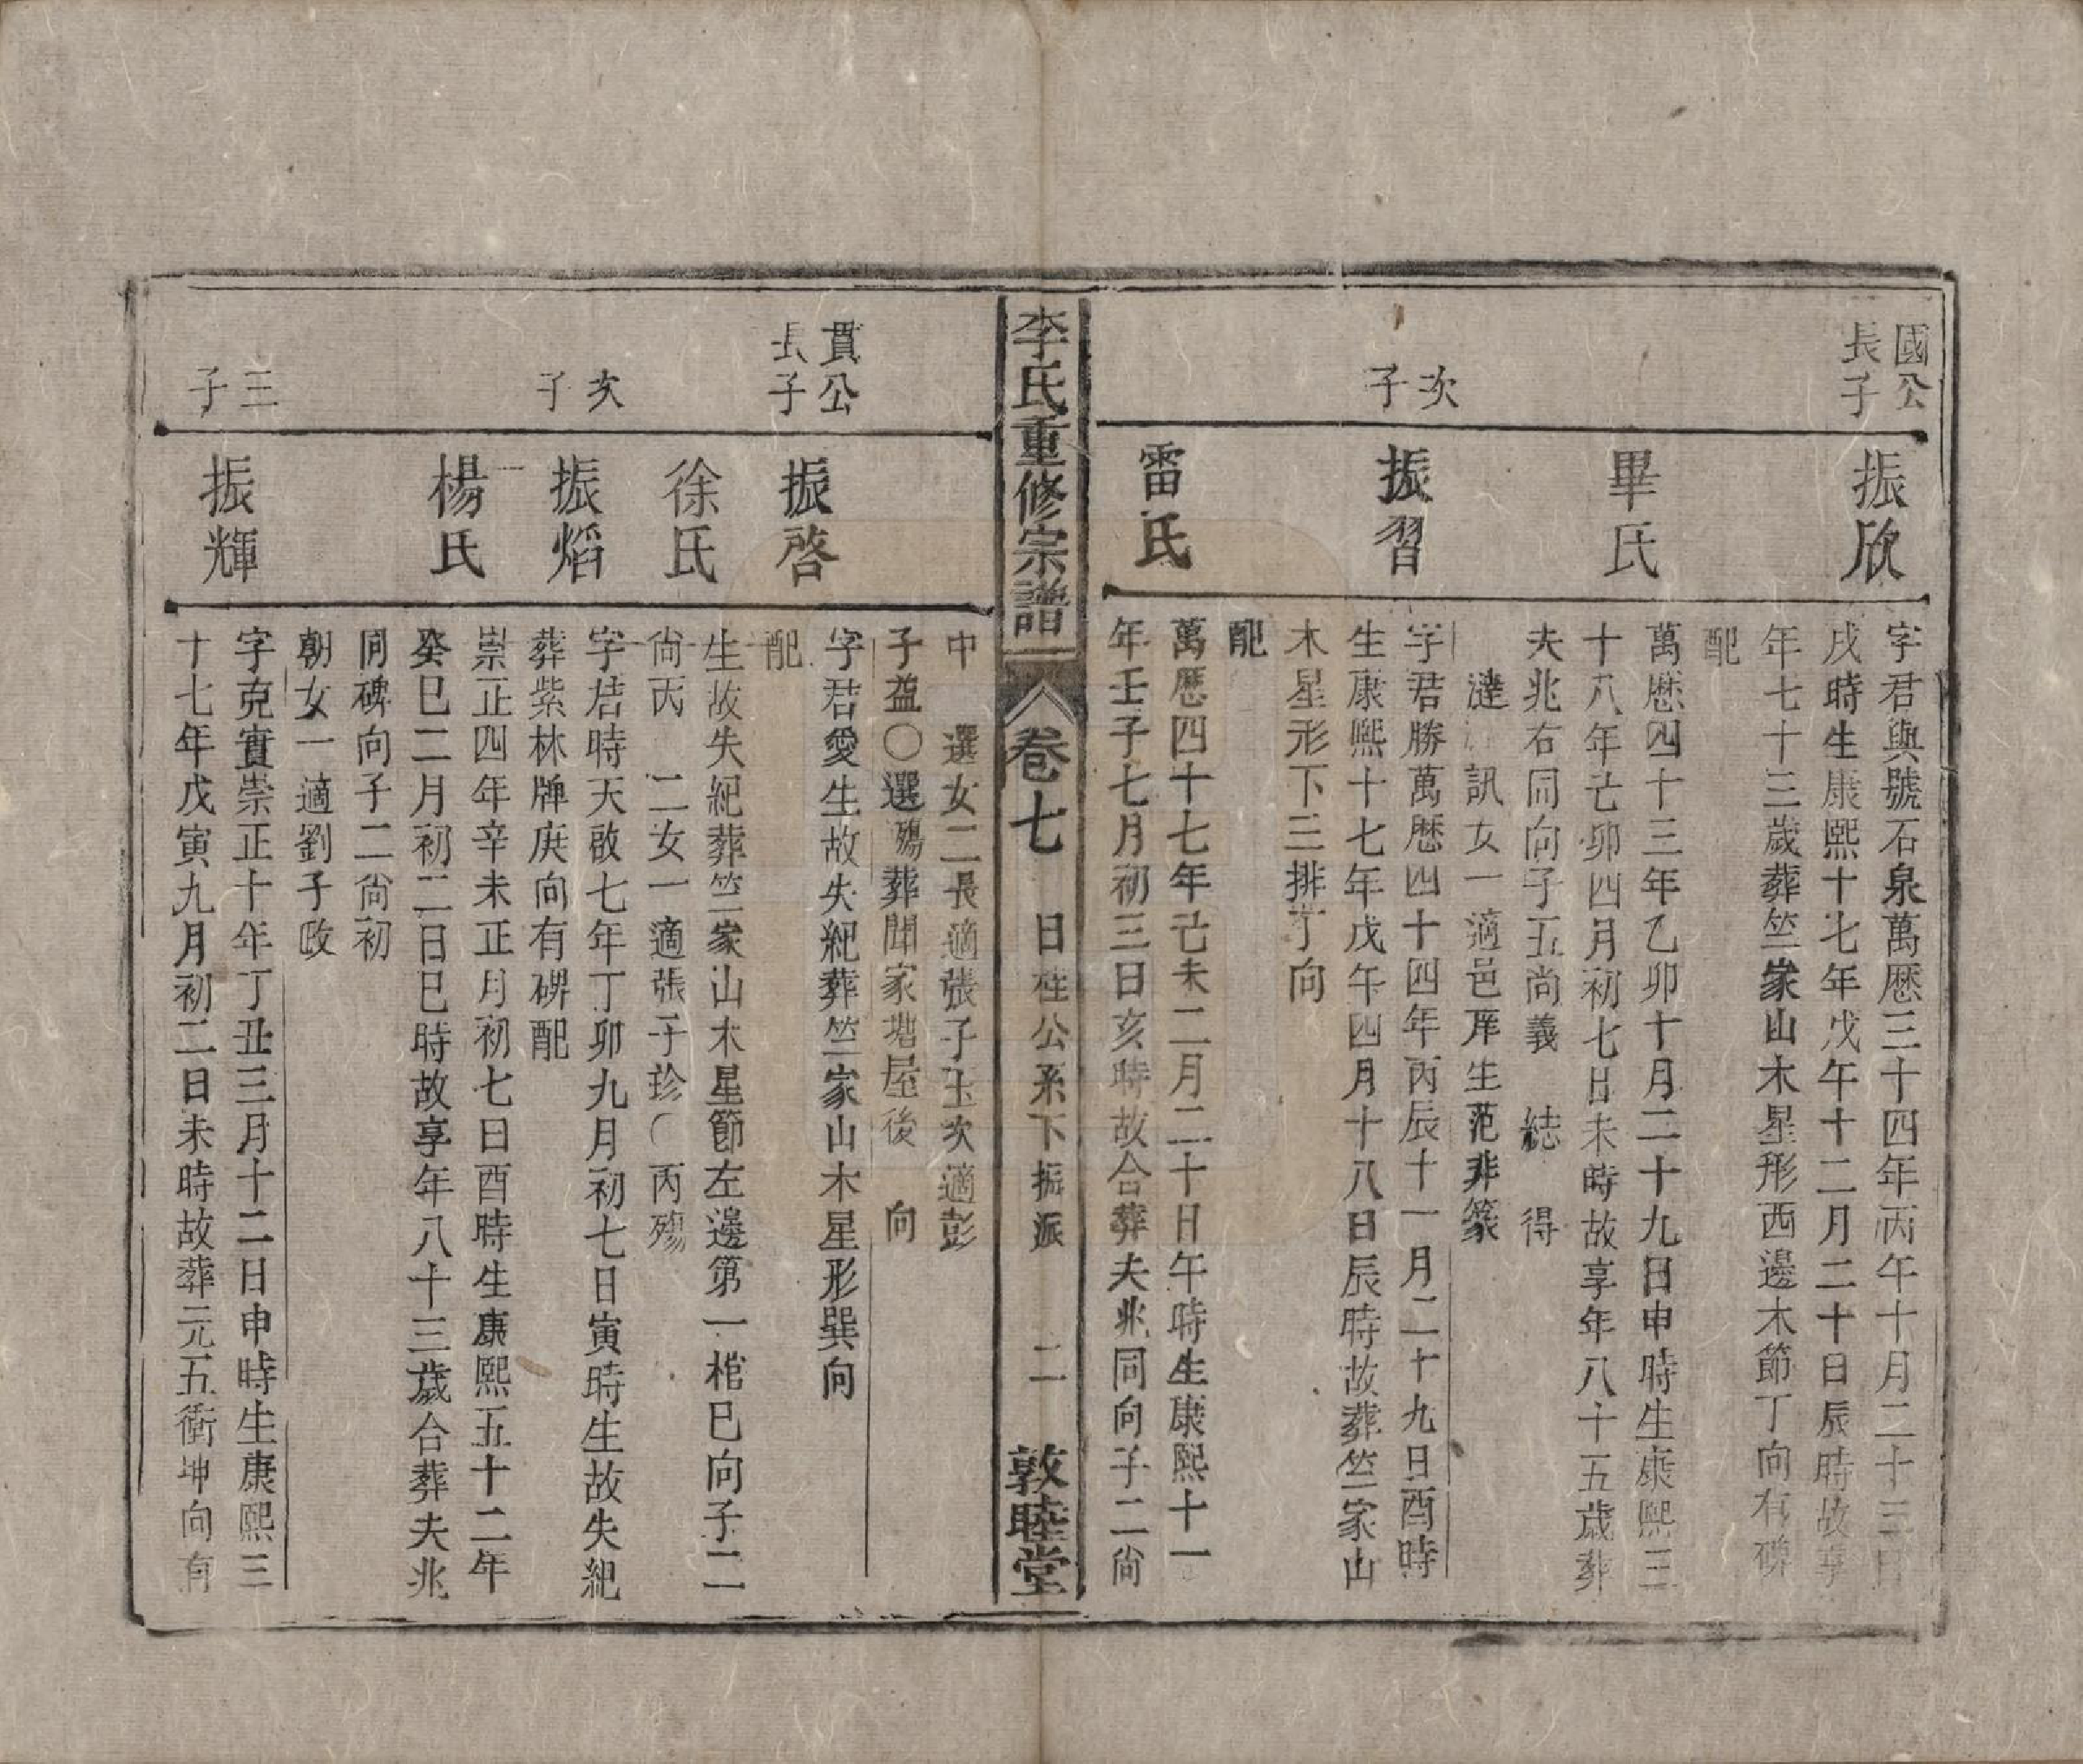 國公
長子
振欣
字君與號石泉萬歷三十四年丙午十月二十三日
戌時生康熙十七年戊午十二月二十日辰時故享
年七十三歲葬竺家山木星形西邊木節丁向有碑
配
畢氏
萬歷四十三年乙卯十月二十九日申時生康熙三
十八年己卯四月初七日未時故享年八十五歲葬
夫兆右同向子五尚義 誌 得
漣 訊女一適邑庠生范非篆
次子
振習
字君勝萬歷四十四年丙辰十一月二十九日酉時
生康熙十七年戊午四月十八日辰時故葬竺家山
木星形下三排丁向
配
雷氏
萬歷四十七年己未二月二十日午時生康熙十一
年壬子七月初三日亥時故合葬夫兆同向子二尚
李氏重修宗譜 卷七 日桂公系下振派 二 敦睦堂
中 選女二長適張子玉次適彭
子益〇選殤葬聞家塘屋後 向
貫公
長子
振啓
字君愛生故失紀葬竺家山木星形巽向
配
徐氏
生故失紀葬竺家山木星節左邊第一棺巳向子二
尚丙 二女一適張子珍〇丙殤
次子
振熖
字君時天啟七年丁卯九月初七日寅時生故失紀
葬紫林牌庚向有碑配
楊氏
崇正四年辛未正月初七日酉時生康熙五十二年
癸巳二月初二日巳時故享年八十三歲合葬夫兆
同碑向子二尚初
朝女一適劉子政
三子
振輝
字克實崇正十年丁丑三月十二日申時生康熙三
十七年戊寅九月初二日未時故葬元五衝坤向有